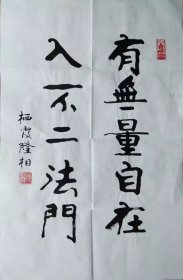 有無量自在
入不二法門
栖霞隆相